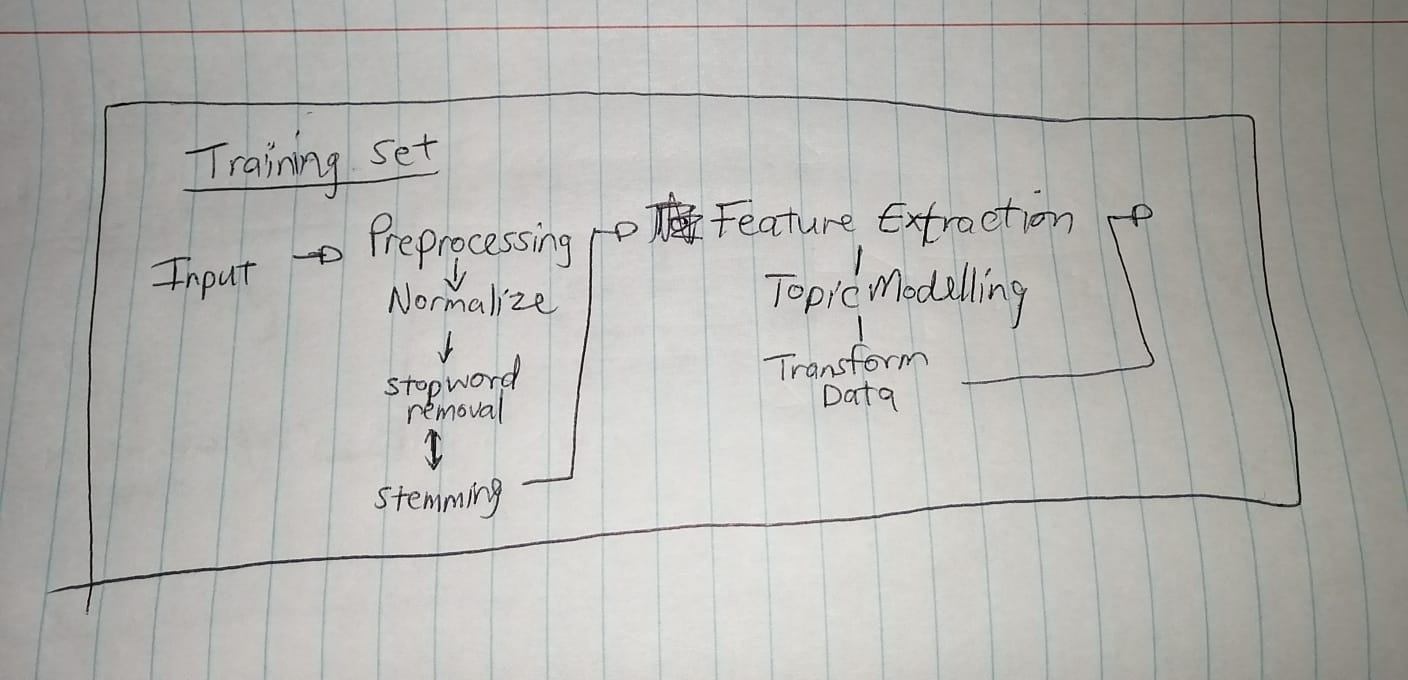 Training set
Input
Preprocessing
Normalize
Stopword
removal
Stemming
Feature Extraction
Topic Modelling
Transform
Data